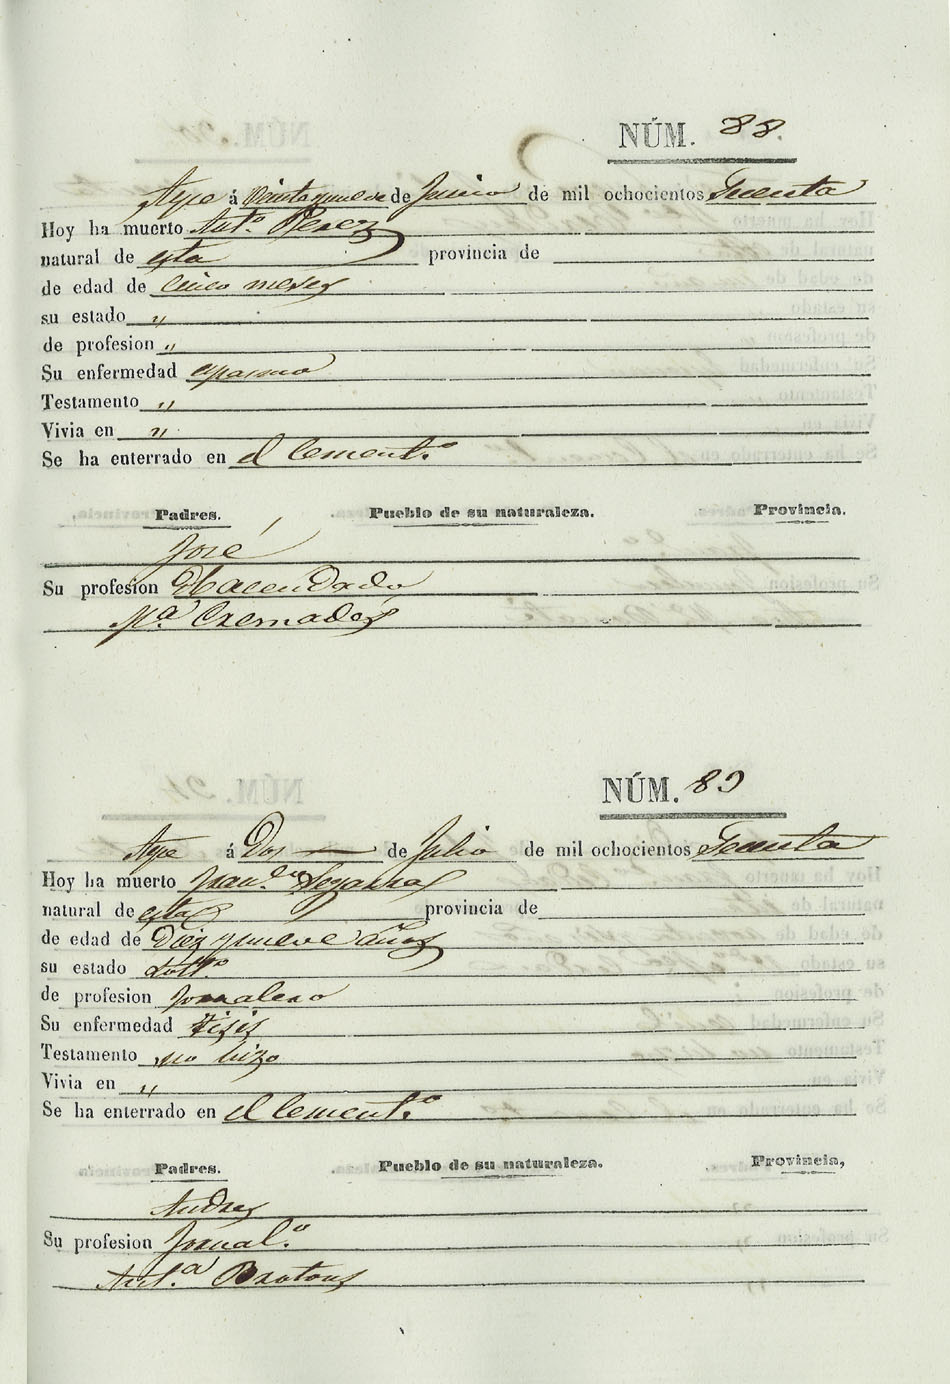 NÚM. 88.
Aspe á Veinte y nueve de Junio de mil ochocientos Treenta
Hoy ha muerto Antº. Perez
natural de esta provincia de
de edad de Cinco meses
su estado „
de profesion „
Su enfermedad espasmo
Testamento „
Vivia en „
Se ha enterrado en el Cementº.
Padres. Pueblo de su naturaleza. Provincia.
José
Su profesion Hacendado
Mª. Cremades
NÚM. 89
Aspe á Dos de Julio de mil ochocientos Treenta
Hoy ha muerto
natural de esta provincia de
de edad de Diez y nueve años
su estado Soltº.
de profesion Jornalero
Su enfermedad Tisis
Testamento no hizo
Vivia en „
Se ha enterrado en el Cementº.
Padres. Pueblo de su naturaleza. Provincia,
Andres
Su profesion Jornalº.
Antª. Brotons